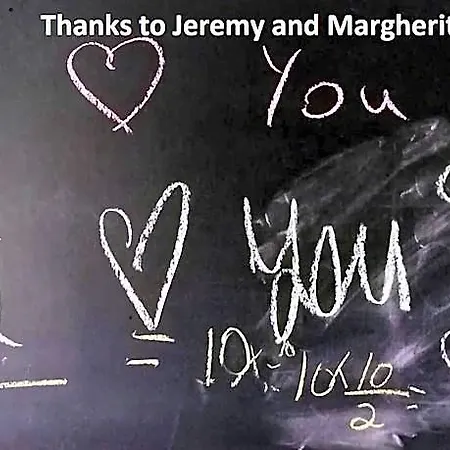 Thanks to Jeremy and Margherit
You
You
10
2